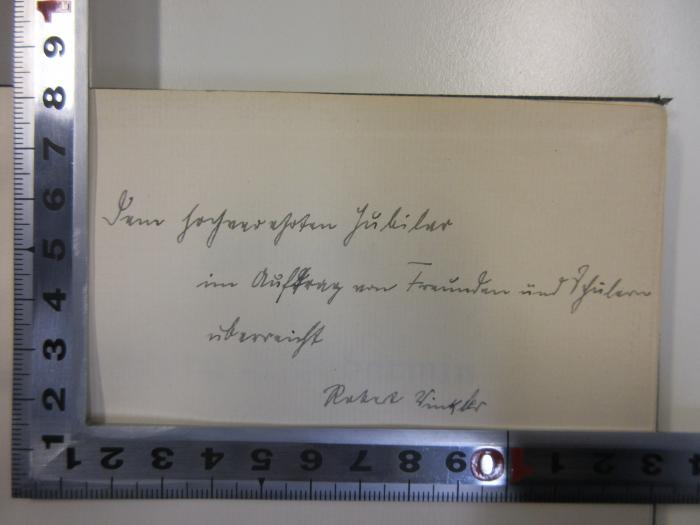 Dem hochverehrten Jubilar
im Auftrag von Freunden und Schülern
überreicht
Robert Winkler
9
8
7
6
5
4
3
2
1
1 2 3 4 5 6 7 8 9 10 1 2 3 4